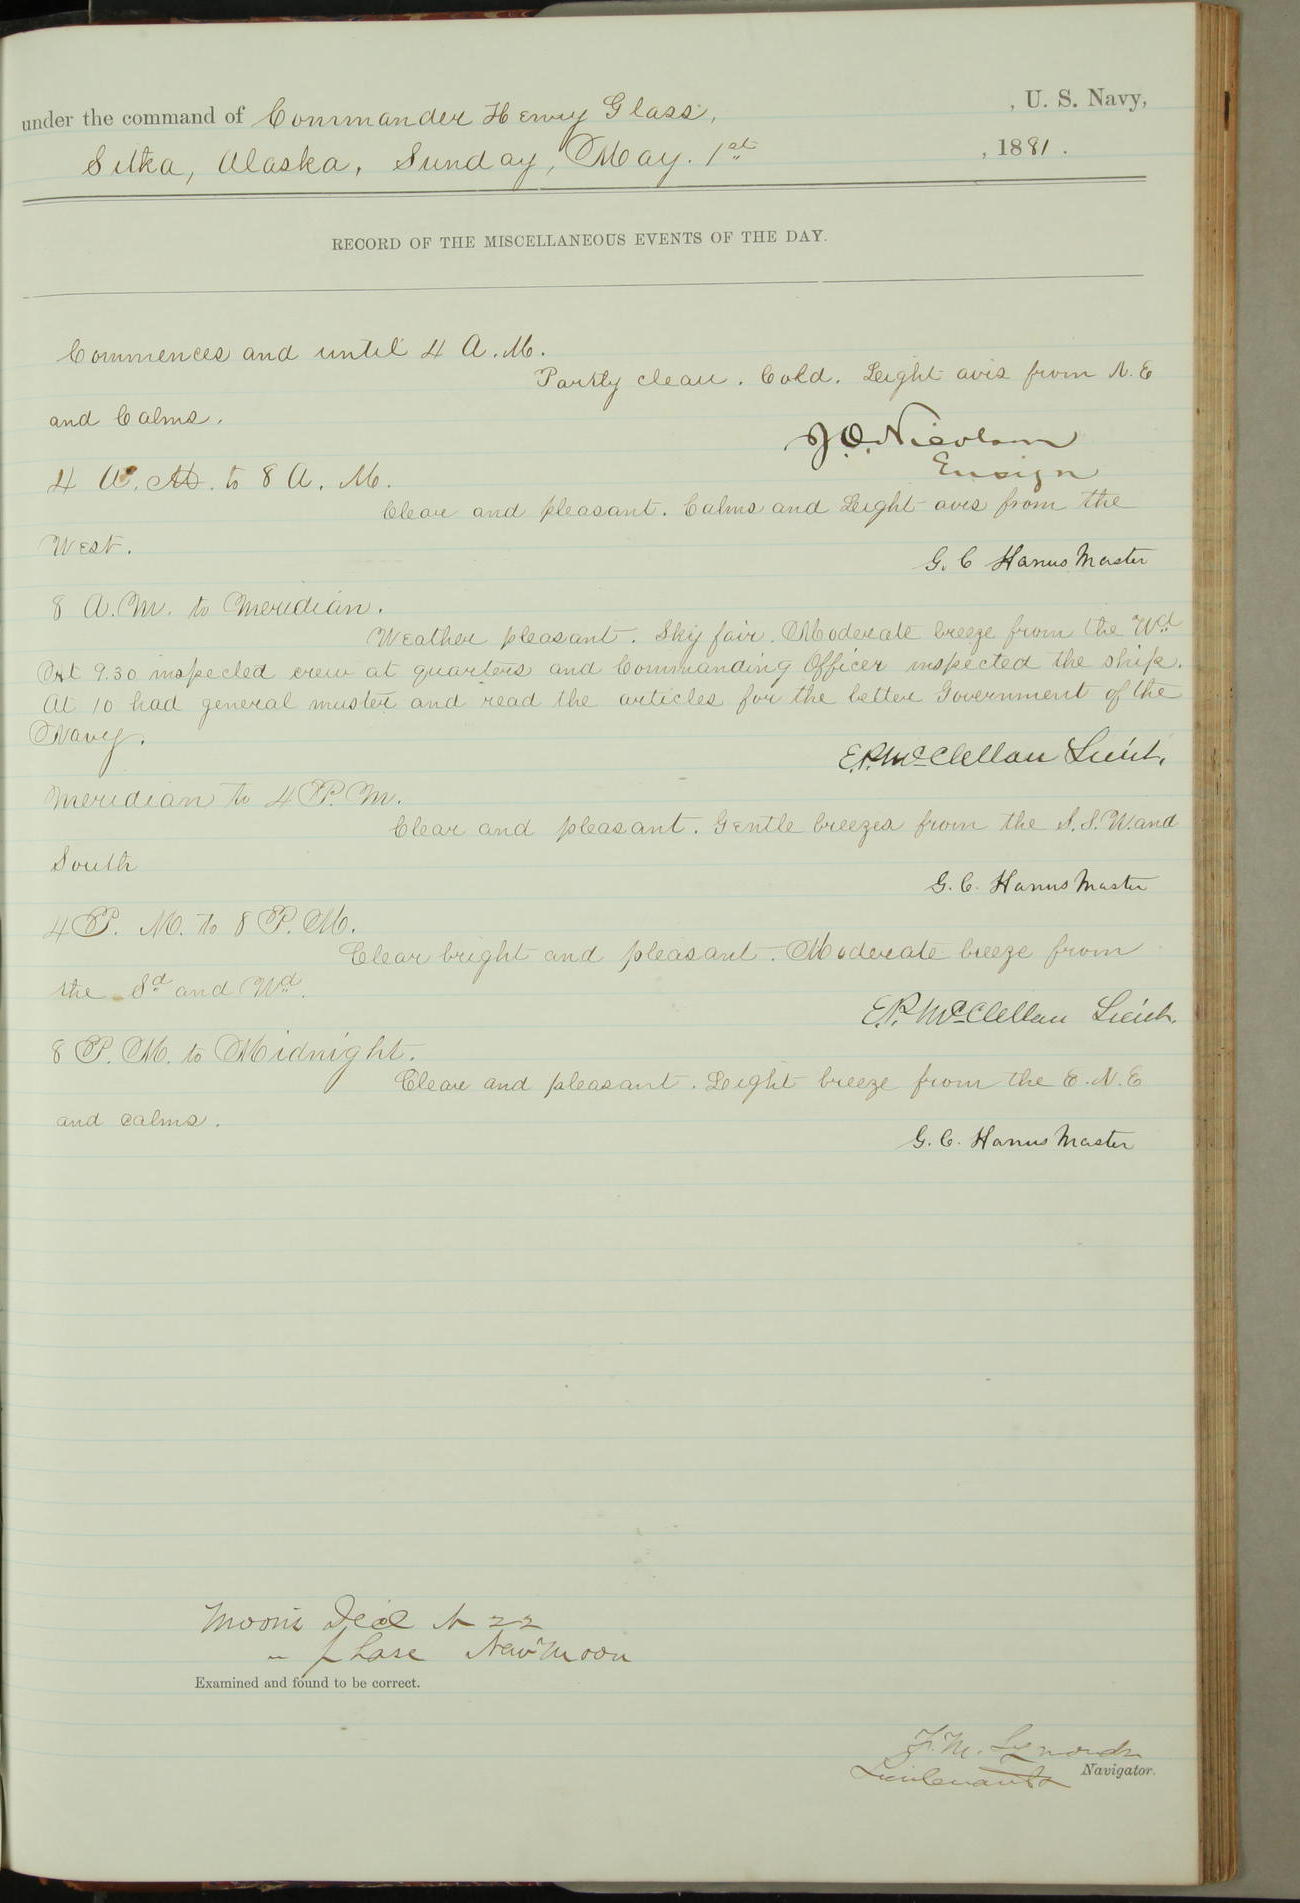 under the command of Commander Henry Glass, , U. S. Navy,
Sitka, Alaska, Sunday, May. 1st , 1881.
RECORD OF THE MISCELLANEOUS EVENTS OF THE DAY.
Commences and until 4 A.M.
Partly clear. Cold. Light airs from N.E
and Calms.
J.O. Nicolson
Ensign
4 A.M. to 8 A.M.
Clear and pleasant. Calms and Light airs from the
West.
G. C Hanus Master
8 A.M. to Meridian.
Weather pleasant. Sky fair. Moderate breeze from the Wd
At 9.30 inspected crew at quarters and Commanding Officer inspected the ship.
At 10 had general muster and read the articles for the better Government of the
Navy.
E.P. McClellan Lieut.
Meridian to 4 P.M.
Clear and pleasant. Gentle breezes from the S.S.W. and
South
G. C. Hanus Master
4 P. M. to 8 P.M.
Clear bright and pleasant. Moderate breeze from
the Sd and Wd.
E.P. McClellan Lieut.
8 P.M. to Midnight.
Clear and pleasant. Light breeze from the E.N.E
and calms.
G. C. Hanus Master
Moon's Decl N 22
" phase New Moon
Examined and found to be correct.
F. M. Symonds
Lieutenant & Navigator.